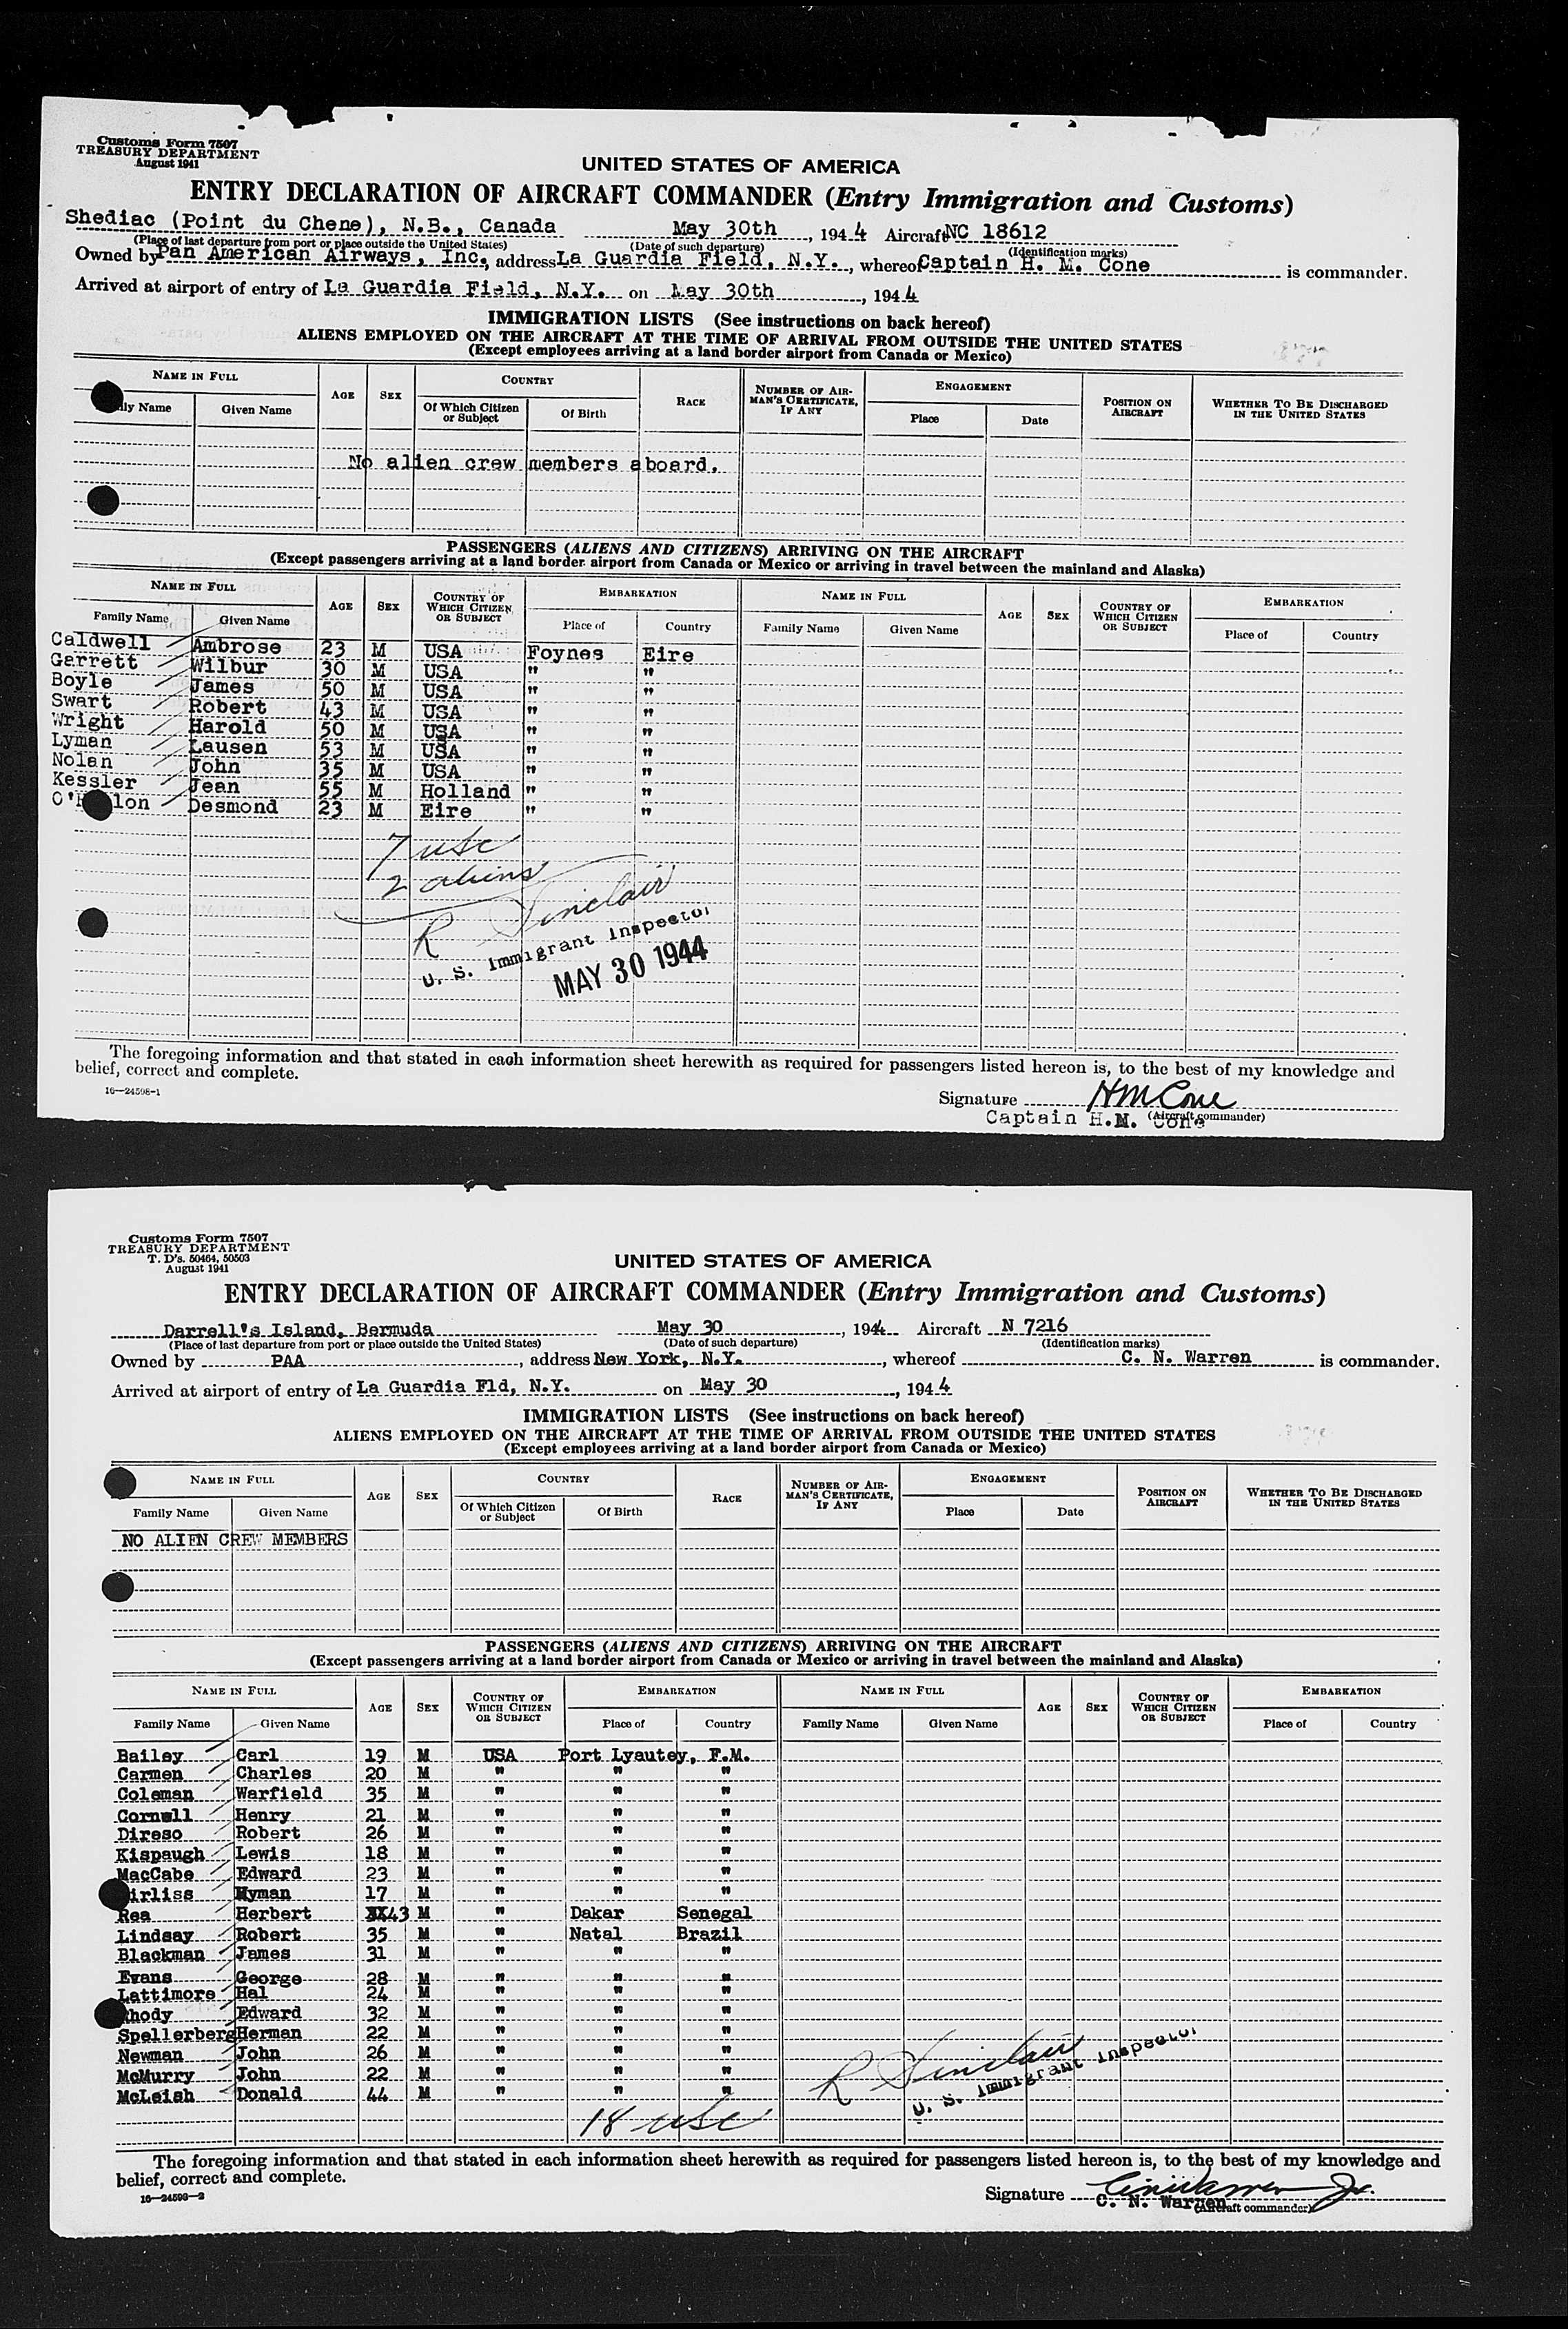 Customs Form 7507
TREASURY DEPARTMENT
August 1941
UNITED STATES OF AMERICA
ENTRY DECLARATION OF AIRCRAFT COMMANDER (Entry Immigration and Customs)
Shediac (Point du Chene), N.B., Canada May 30th, 1944 Aircraft NC 18612
(Place of last departure from port or place outside the United States) (Date of such departure) (Identification marks)
Owned by Pan American Airways, Inc., address La Guardia Field, N.Y., whereof Captain H. M. Cone is commander.
Arrived at airport of entry of La Guardia Field, N.Y. on May 30th, 1944
IMMIGRATION LISTS (See instructions on back hereof)
ALIENS EMPLOYED ON THE AIRCRAFT AT THE TIME OF ARRIVAL FROM OUTSIDE THE UNITED STATES
(Except employees arriving at a land border airport from Canada or Mexico)
NAME IN FULL AGE SEX COUNTRY RACE NUMBER OF AIRMAN'S CERTIFICATE, IF ANY ENGAGEMENT POSITION ON AIRCRAFT WHETHER TO BE DISCHARGED IN THE UNITED STATES
Name Given Name Of Which Citizen or Subject Of Birth Place Date
No alien crew members aboard.
PASSENGERS (ALIENS AND CITIZENS) ARRIVING ON THE AIRCRAFT
(Except passengers arriving at a land border airport from Canada or Mexico or arriving in travel between the mainland and Alaska)
NAME IN FULL AGE SEX COUNTRY OF WHICH CITIZEN OR SUBJECT EMBARKATION NAME IN FULL AGE SEX COUNTRY OF WHICH CITIZEN OR SUBJECT EMBARKATION
Family Name Given Name Place of Country Family Name Given Name Place of Country
Caldwell Ambrose 23 M USA Foynes Eire
Garrett Wilbur 30 M USA " "
Boyle James 50 M USA " "
Swart Robert 43 M USA " "
Wright Harold 50 M USA " "
Lyman Lausen 53 M USA " "
Nolan John 35 M USA " "
Kessler Jean 55 M Holland " "
Desmond 23 M Eire " "
7 usc
2 aliens
R Sinclair
U. S. Immigrant Inspector
MAY 30 1944
The foregoing information and that stated in each information sheet herewith as required for passengers listed hereon is, to the best of my knowledge and
belief, correct and complete.
16—24598-1
Signature HMCone
(Aircraft commander)
Captain H.M. Cone
Customs Form 7507
TREASURY DEPARTMENT
T. D's. 50464, 50503
August 1941
UNITED STATES OF AMERICA
ENTRY DECLARATION OF AIRCRAFT COMMANDER (Entry Immigration and Customs)
Darrell's Island, Bermuda May 30, 1944 Aircraft N 7216
(Place of last departure from port or place outside the United States) (Date of such departure) (Identification marks)
Owned by PAA, address New York, N.Y., whereof C. N. Warren is commander.
Arrived at airport of entry of La Guardia Fld, N.Y. on May 30, 1944
IMMIGRATION LISTS (See instructions on back hereof)
ALIENS EMPLOYED ON THE AIRCRAFT AT THE TIME OF ARRIVAL FROM OUTSIDE THE UNITED STATES
(Except employees arriving at a land border airport from Canada or Mexico)
NAME IN FULL AGE SEX COUNTRY RACE NUMBER OF AIRMAN'S CERTIFICATE, IF ANY ENGAGEMENT POSITION ON AIRCRAFT WHETHER TO BE DISCHARGED IN THE UNITED STATES
Family Name Given Name Of Which Citizen or Subject Of Birth Place Date
NO ALIEN CREW MEMBERS
PASSENGERS (ALIENS AND CITIZENS) ARRIVING ON THE AIRCRAFT
(Except passengers arriving at a land border airport from Canada or Mexico or arriving in travel between the mainland and Alaska)
NAME IN FULL AGE SEX COUNTRY OF WHICH CITIZEN OR SUBJECT EMBARKATION NAME IN FULL AGE SEX COUNTRY OF WHICH CITIZEN OR SUBJECT EMBARKATION
Family Name Given Name Place of Country Family Name Given Name Place of Country
Bailey Carl 19 M USA Port Lyautey, F.M.
Carmen Charles 20 M " " "
Coleman Warfield 35 M " " "
Cornell Henry 21 M " " "
Direso Robert 26 M " " "
Kispaugh Lewis 18 M " " "
MacCabe Edward 23 M " " "
irliss Hyman 17 M " " "
Rea Herbert 43 M " Dakar Senegal
Lindsay Robert 35 M " Natal Brazil
Blackman James 31 M " " "
Evans George 28 M " " "
Lattimore Hal 24 M " " "
Rhody Edward 32 M " " "
Spellerberg Herman 22 M " " "
Newman John 26 M " " "
McMurry John 22 M " " "
McLeish Donald 44 M " " "
R Sinclair
U. S. Immigrant Inspector
18 usc
The foregoing information and that stated in each information sheet herewith as required for passengers listed hereon is, to the best of my knowledge and
belief, correct and complete.
16—24598-2
Signature C N Warren Jr.
C. N. Warren
(Aircraft commander)